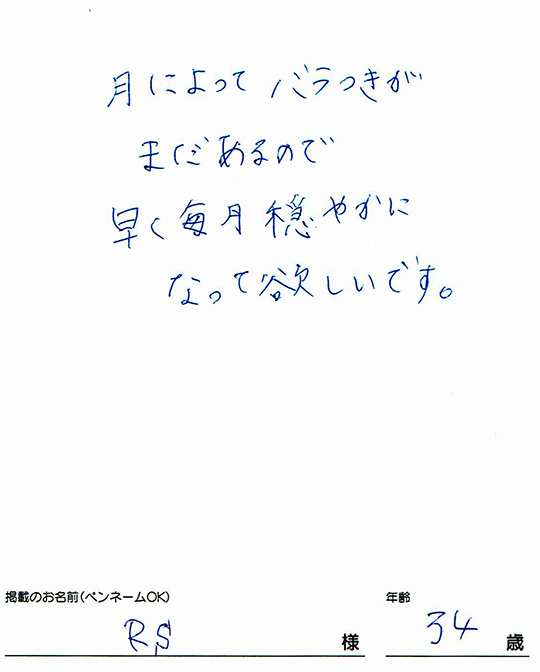 月によって バラつきが
まだあるので
早く毎月穏やかに
なって欲しいです。
掲載のお名前(ペンネームOK)
年齢
R,S 様 34 歳